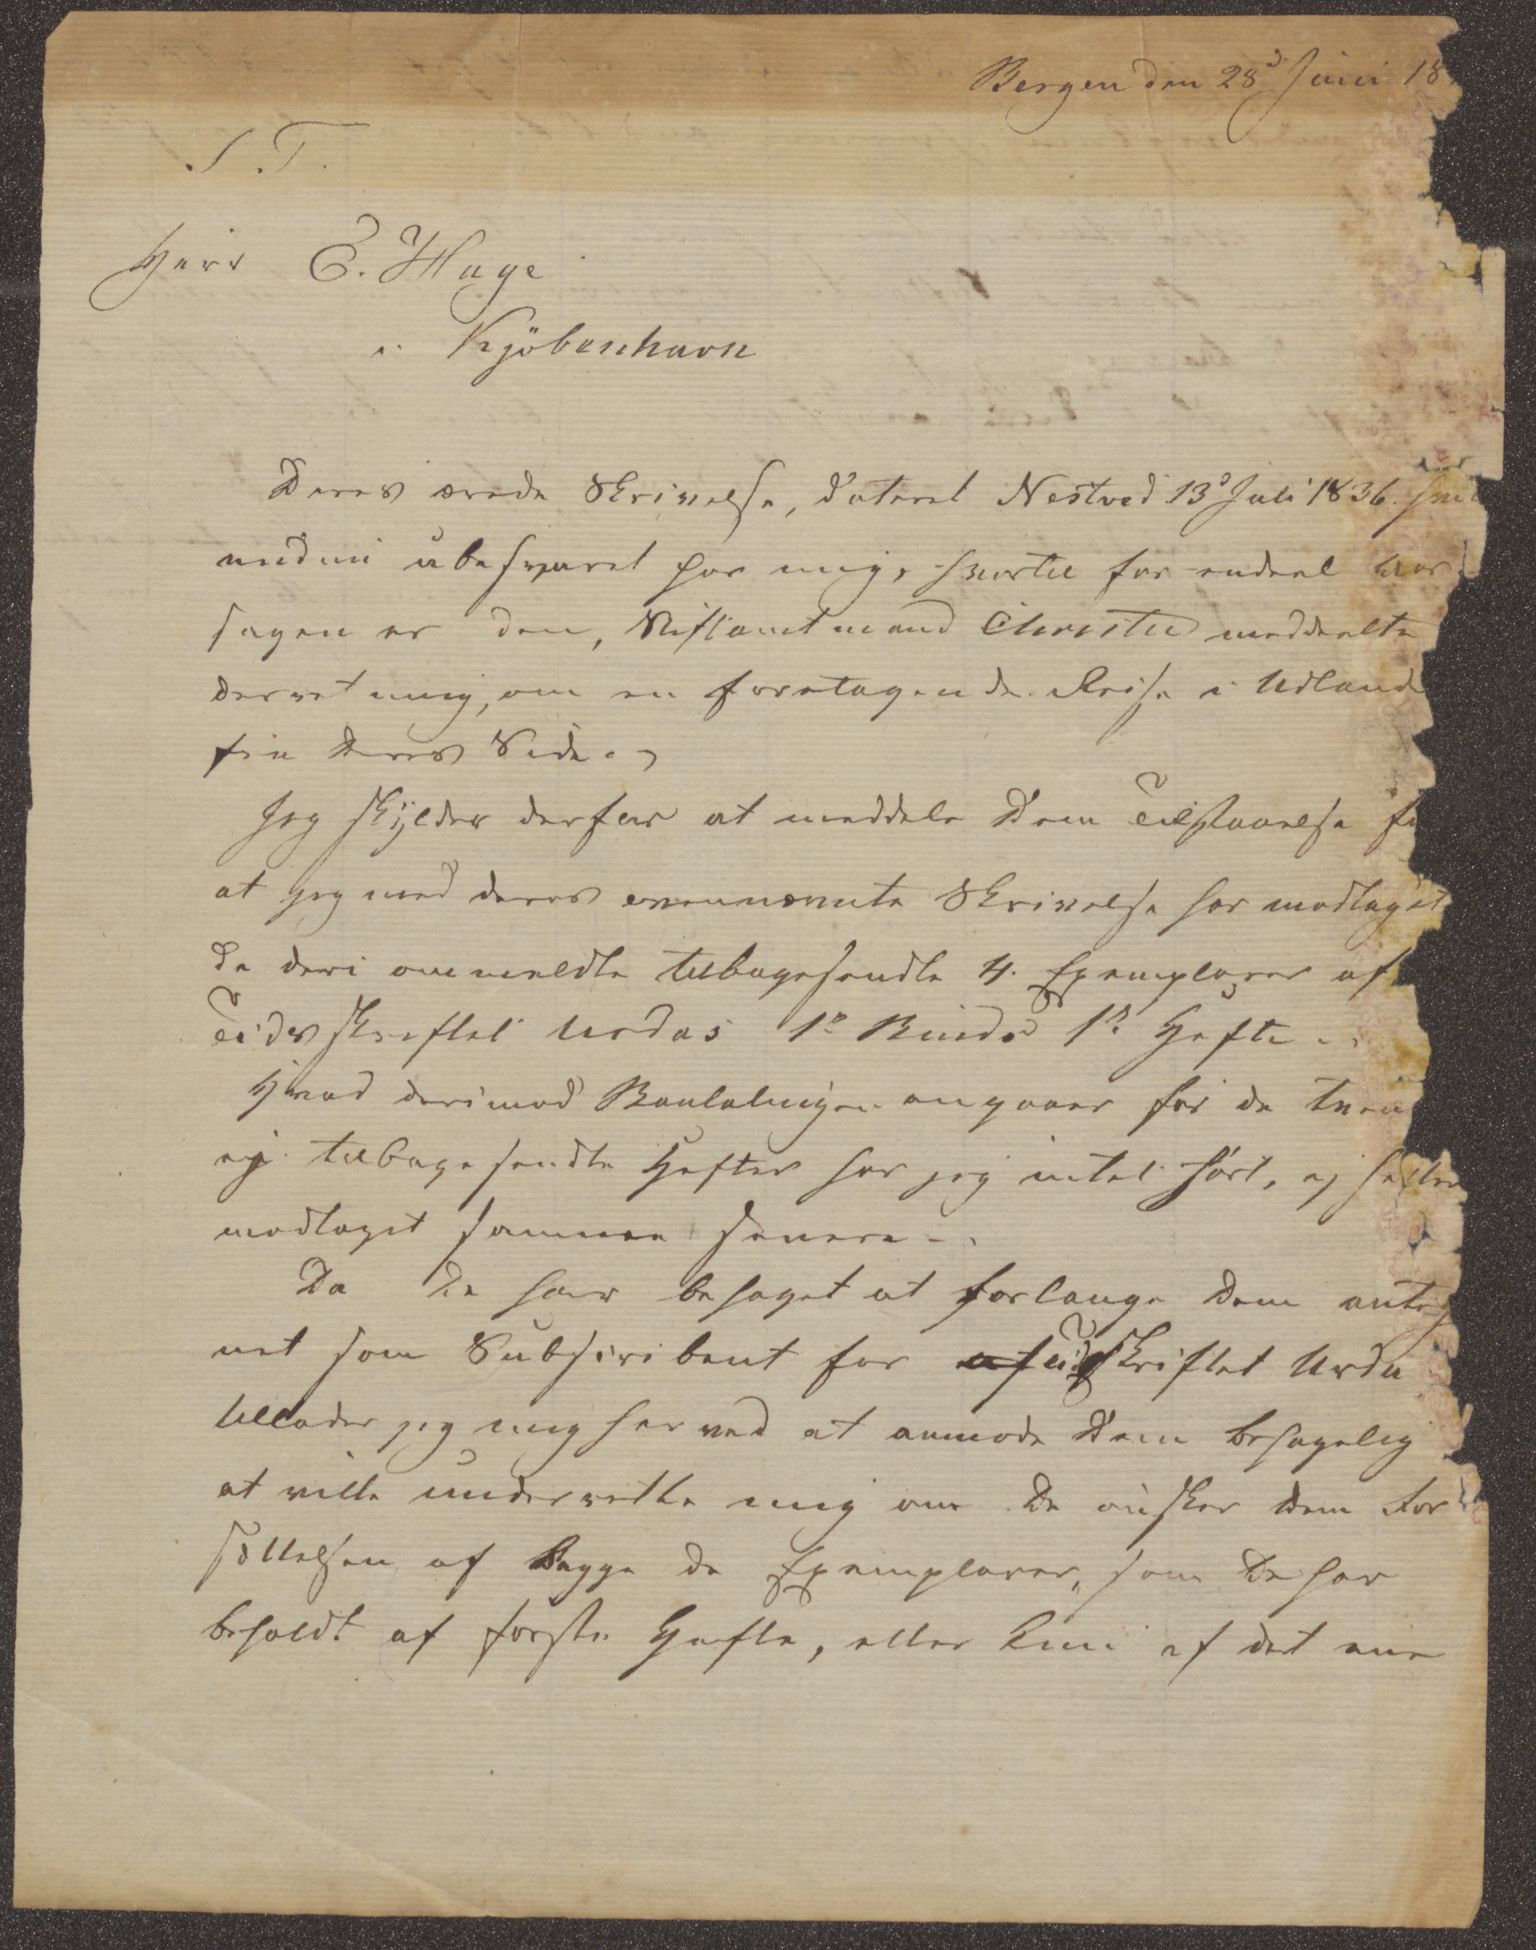 Bergen den 28d Juni 18
S. T.
Herr C. Hage
i Kjöbenhavn
Deres ærede Skrivelse, dateret Nestved 13d Juli 1836. henl
endnu ubesvaret hos mig, hvortil for endeel Aar
sagen er den, Stiftamtmand Christie meddeelte
derret mig, om en foretagende Reise i Udland
fra Deres Side.
Jeg skylder derfor at meddele Dem Tilstaaelse fo
at jeg med deres ovennævnte Skrivelse har modtaget
de deri ommeldte tilbagesendte 4. Exemplarer af
Tidsskriftet Urdas 1s Binds 1s Hefte..
Hvad derimod Bealingen angaaer for de tvende
ej tilbagesendte Hefter har jeg intet hört, ej heller
modtaget samme senere..
Da De har behaget at forlange Dem anteg
net som Subscribent for Tidsskriftet Urda
tillader jeg mig herved at anmode Dem behagelig
at ville underrette mig om De önsker Dem For
sættelsen af Begge de Exemplarer, som De har
beholdt af förste Hefte, eller kun af det ene